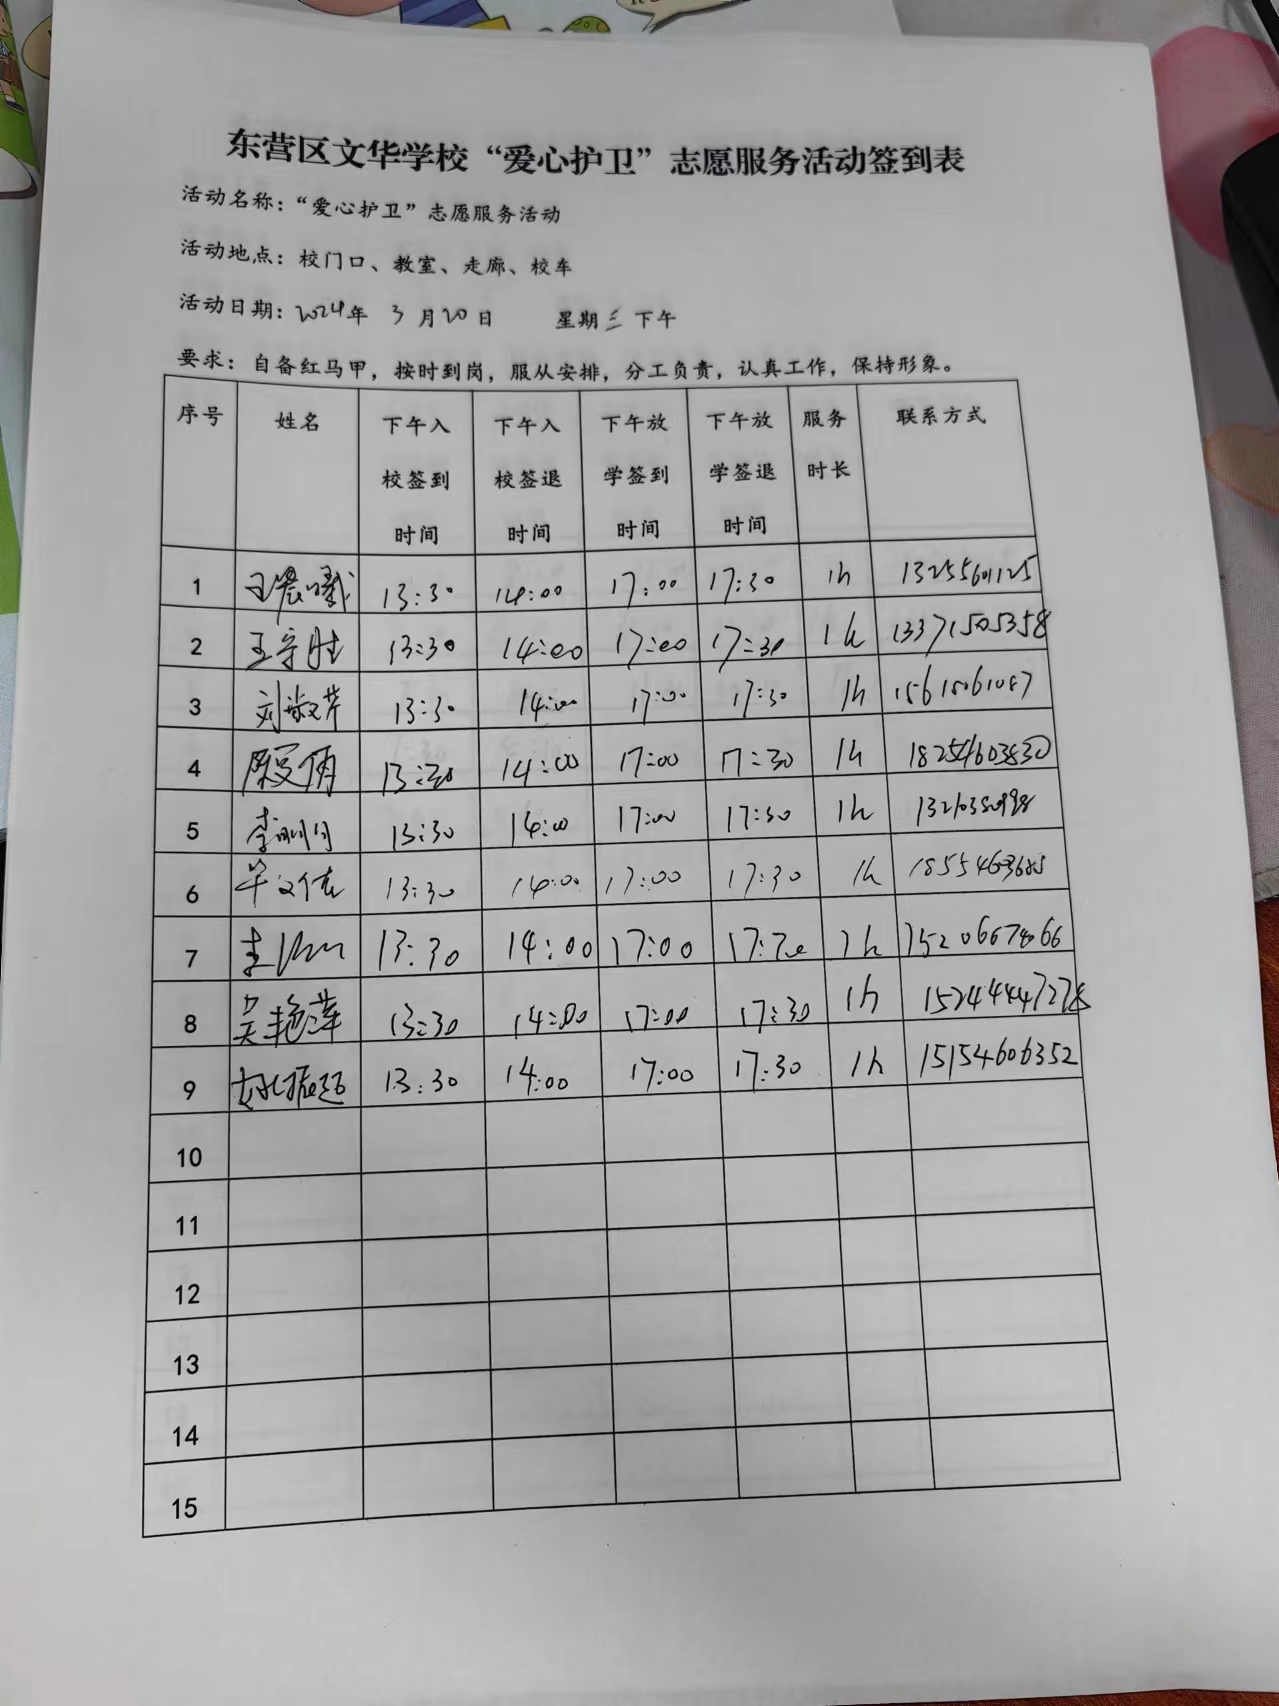 东营区文华学校“爱心护卫”志愿服务活动签到表
活动名称：“爱心护卫”志愿服务活动
活动地点：校门口、教室、走廊、校车
活动日期：2024年 3月20日 星期三下午
要求：自备红马甲，按时到岗，服从安排，分工负责，认真工作，保持形象。
序号 姓名 下午入校签到时间 下午入校签退时间 下午放学签到时间 下午放学签退时间 服务时长 联系方式
1 王晨曦 13:30 14:00 17:00 17:30 1h 13255601125
2 王守胜 13:30 14:00 17:00 17:30 1h 13371505358
3 刘淑芹 13:30 14:00 17:00 17:30 1h
4 13:30 14:00 17:00 17:30 1h 18254603830
5 13:30 14:00 17:00 17:30 1h
6 13:30 14:00 17:00 17:30 1h
7 13:30 14:00 17:00 17:30 1h
8 吴艳萍 13:30 14:00 17:00 17:30 1h 15244447278
9 13:30 14:00 17:00 17:30 1h 15154606352
10
11
12
13
14
15